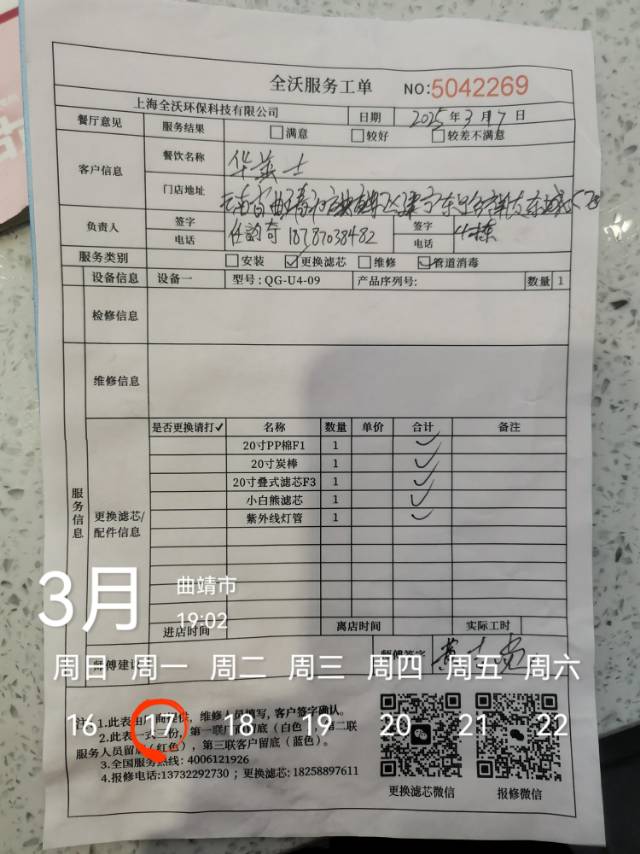 全沃服务工单 NO:5042269
上海全沃环保科技有限公司 日期 2025年3月7日
餐厅意见 服务结果 满意 较好 较差不满意
客户信息 餐饮名称 华莱士
门店地址
负责人 签字 签字
电话 18787038482 电话
服务类别 安装 更换滤芯 维修 管道消毒
设备信息 设备一 型号: QG-U4-09 产品序列号: 数量 1
检修信息
维修信息
服务信息
更换滤芯/配件信息
是否更换请打✓ 名称 数量 单价 合计 备注
20寸PP棉F1 1 ✓
20寸炭棒 1 ✓
20寸叠式滤芯F3 1 ✓
小白熊滤芯 1 ✓
紫外线灯管 1 ✓
3月 曲靖市
19:02
进店时间 离店时间 实际工时
师傅建议 师傅签字
周日 周一 周二 周三 周四 周五 周六
16 17 18 19 20 21 22
注: 1.此表由厂商提供, 维修人员填写, 客户签字确认。
2.此表一式三份, 第一联厂商留底(白色), 第二联
服务人员留底(红色), 第三联客户留底(蓝色)。
3.全国服务热线: 4006121926
4.报修电话:13732292730; 更换滤芯: 18258897611
更换滤芯微信 报修微信